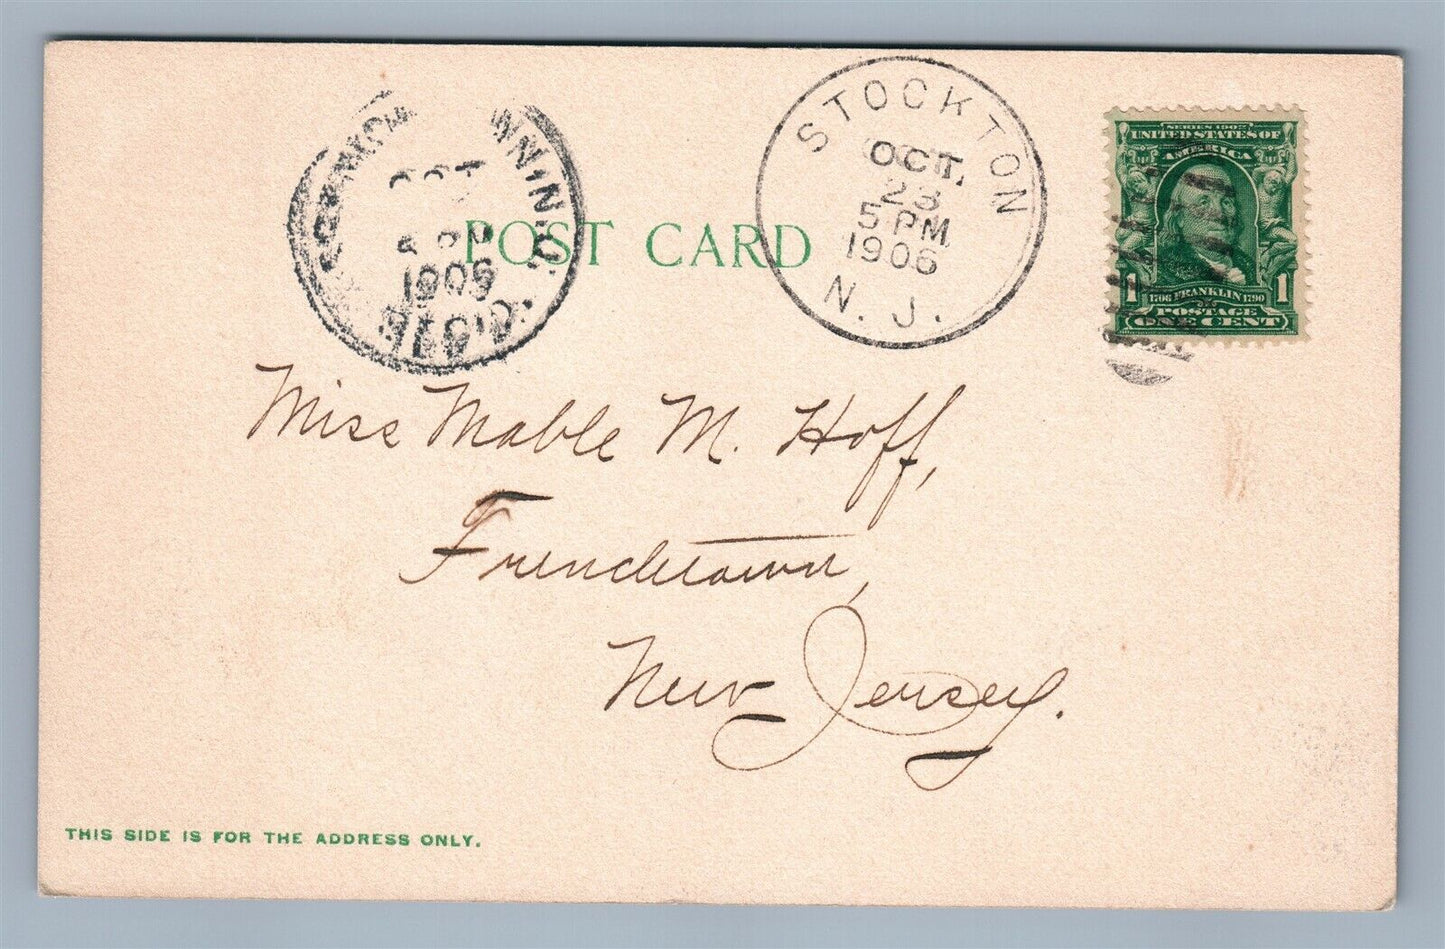 STOCKTON
OCT.
23
5 PM
1906
N. J.
OCT
1906
REC'D.
POST CARD
SERIES 1902
UNITED STATES OF
AMERICA
1 1
1706 FRANKLIN 1790
POSTAGE
ONE CENT
Miss Mable M. Hoff,
Frenchtown,
New Jersey.
THIS SIDE IS FOR THE ADDRESS ONLY.